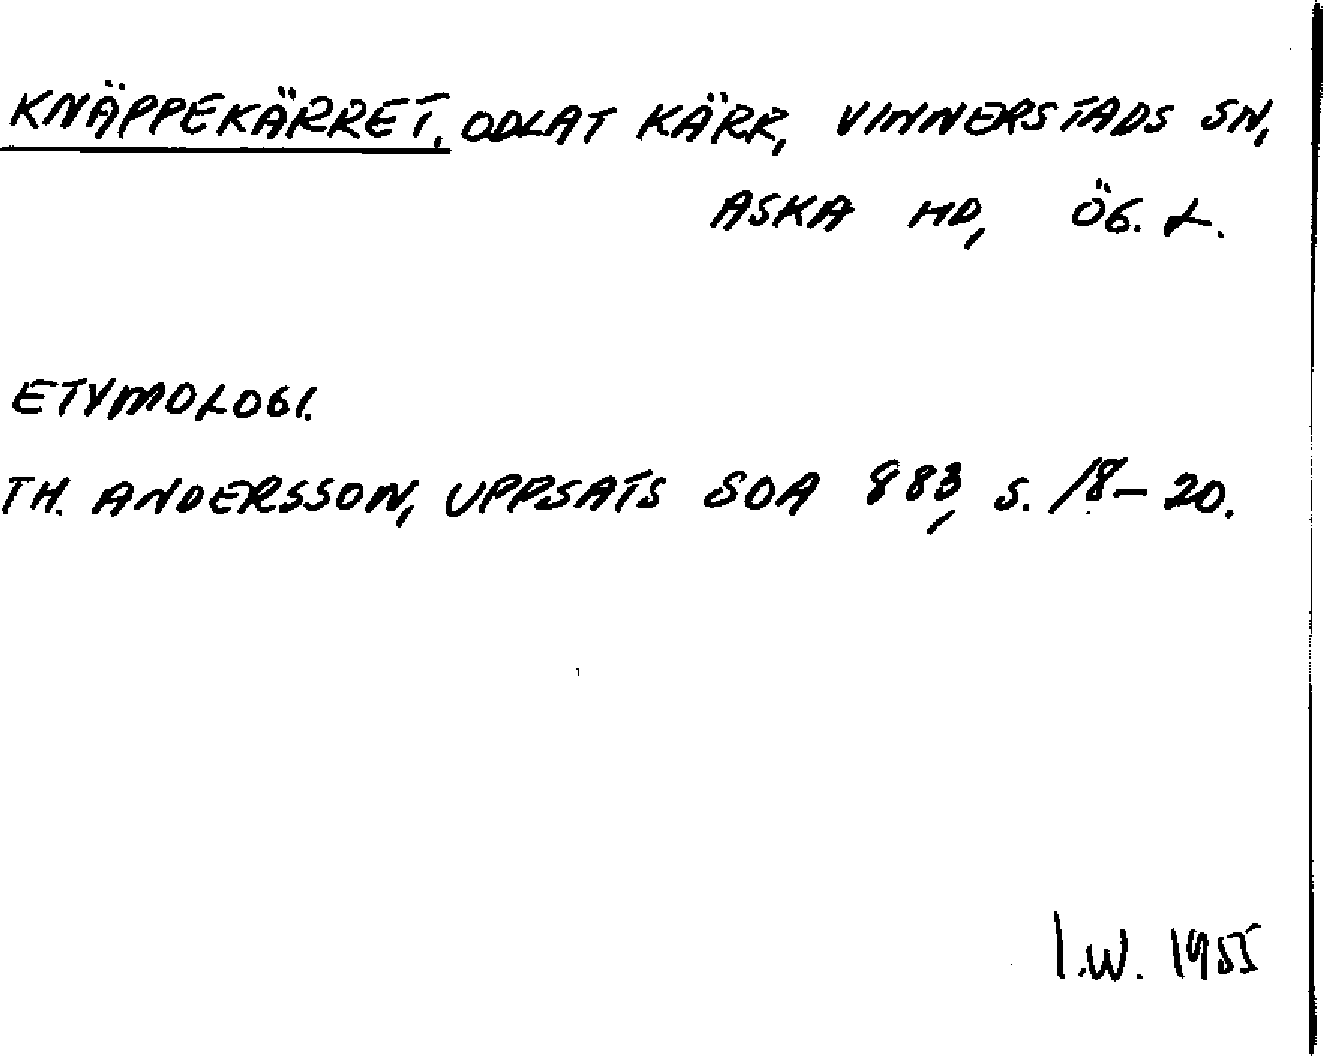 KNÄPPEKÄRRET, ODLAT KÄRR, VINNERSTADS SN,
ASKA HD, ÖG. L.
ETYMOLOGI.
TH. ANDERSSON, UPPSATS SOA 883, S. 18-20.
I.W. 1985